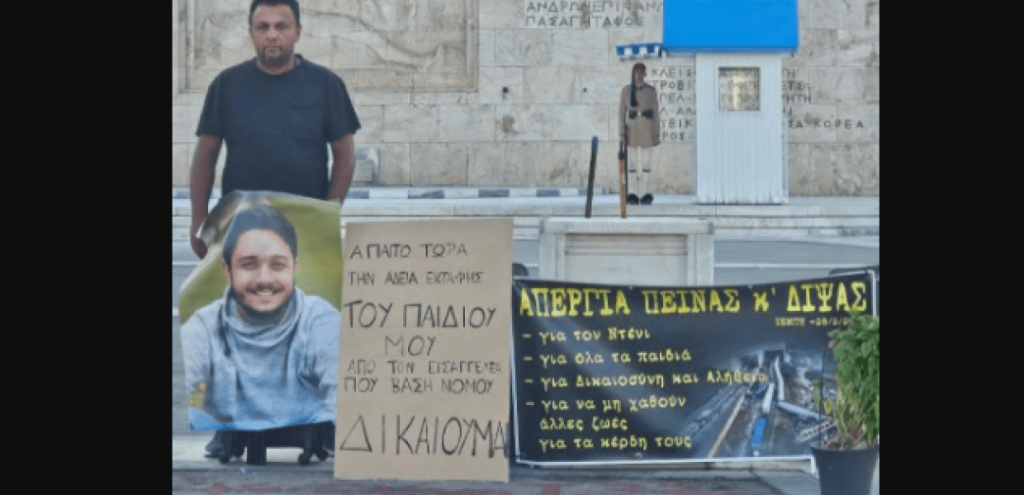 ΑΝΔΡΩΝΕΠΙΦΑΝ
ΠΑΣΑΓΗΤΑΦΟΣ
ΚΟΡΕΑ
ΑΠΑΙΤΩ ΤΩΡΑ
ΤΗΝ ΑΔΕΙΑ ΕΚΤΑΦΗΣ
ΤΟΥ ΠΑΙΔΙΟΥ
ΜΟΥ
ΑΠΟ ΤΟΝ ΕΙΣΑΓΓΕΛΕΑ
ΠΟΥ ΒΑΣΗ ΝΟΜΟΥ
ΔΙΚΑΙΟΥΜΑΙ
ΑΠΕΡΓΙΑ ΠΕΙΝΑΣ κ' ΔΙΨΑΣ
ΤΕΜΠΗ -28/2/
- για τον Ντένι
- για όλα τα παιδιά
- για Δικαιοσύνη και Αλήθεια
- για να μη χαθούν
άλλες ζωές
για τα κέρδη τους